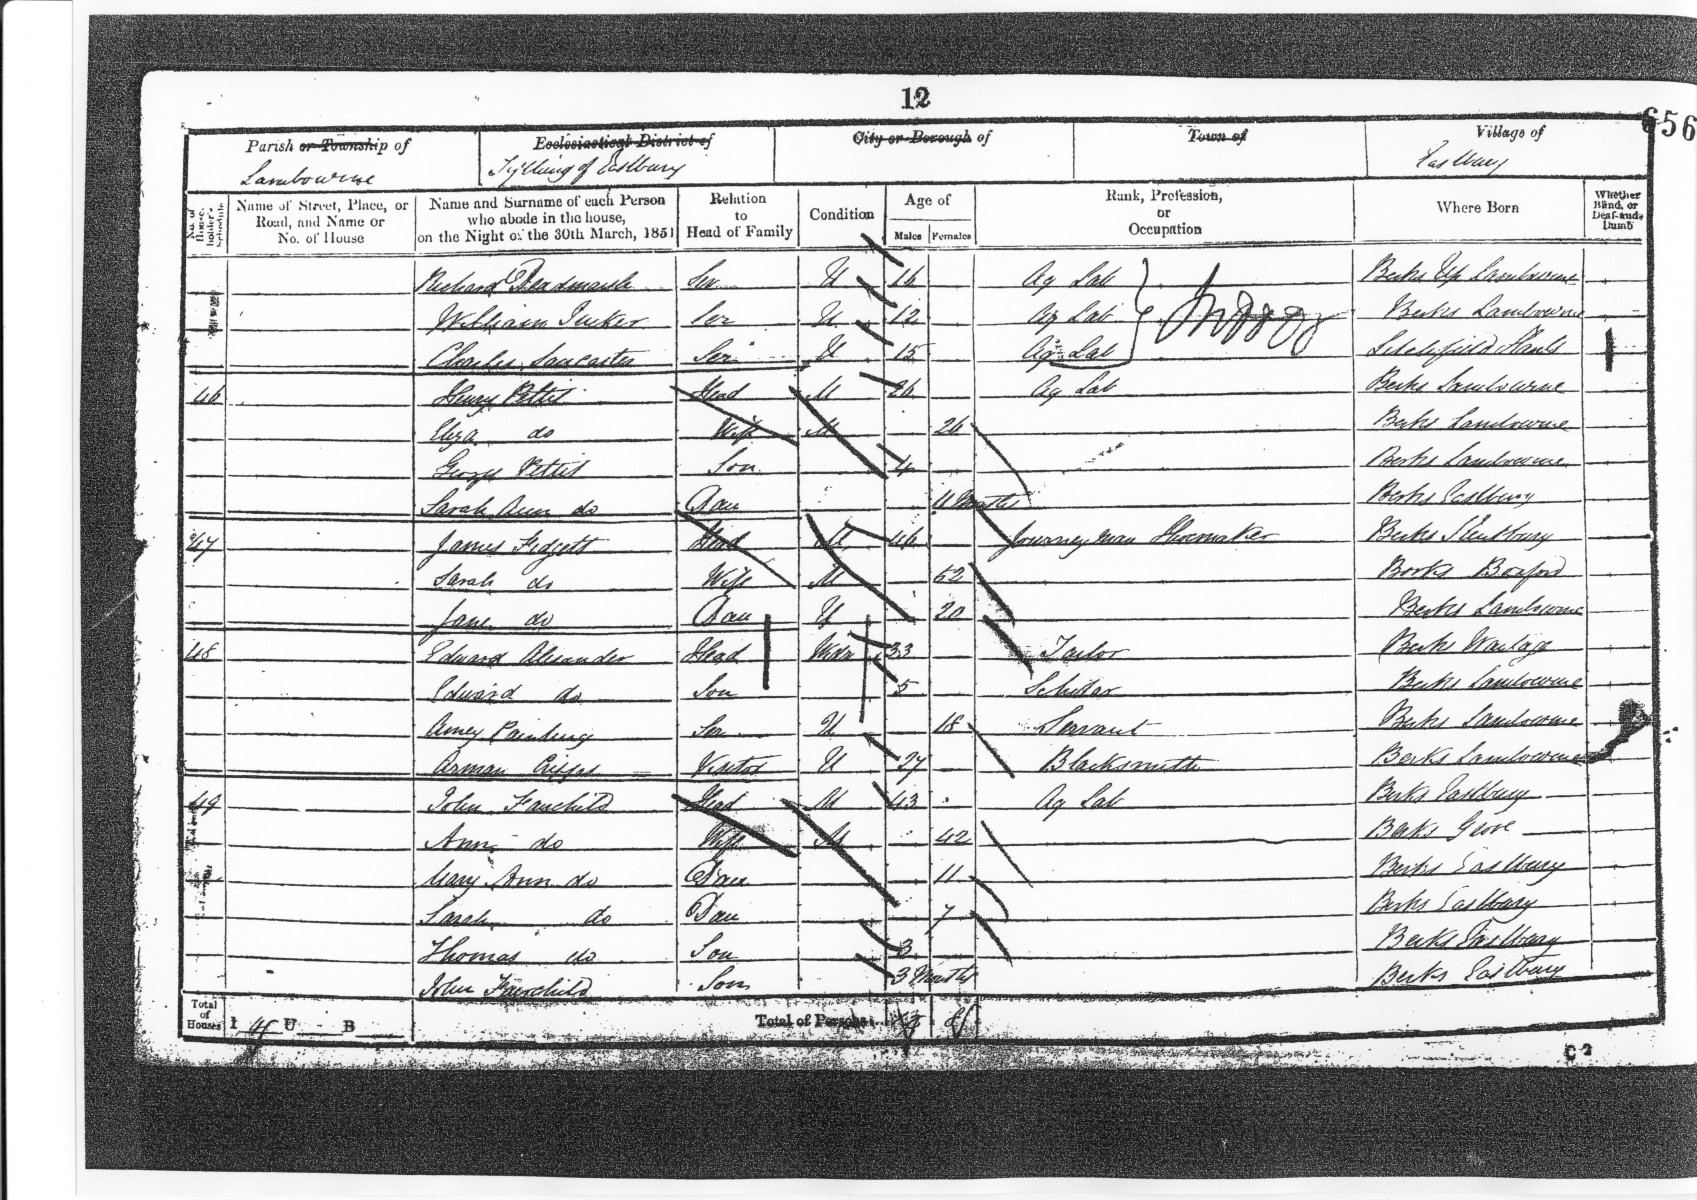 12
656
Parish or Township of
Ecclesiastical District of
City or Borough of
Town of
Village of
Lambourne
Tything of Eastbury
Eastbury
No. of House-holder's Schedule
Name of Street, Place, or Road, and Name or No. of House
Name and Surname of each Person who abode in the house, on the Night of the 30th March, 1851
Relation to Head of Family
Condition
Age of
Males
Females
Rank, Profession, or Occupation
Where Born
Whether Blind, or Deaf-and-Dumb
Richard Deadmarsh Ser U 16 Ag Lab Berks Up Lambourne
William Tucker Ser U 12 Ag Lab Berks Lambourne
Charles Lancaster Ser U 15 Ag Lab Hants
46 Henry Pettit Head M 26 Ag Lab Berks Lambourne
Eliza do Wife M 26 Berks Lambourne
George Pettit Son 4 Berks Lambourne
Sarah Ann do Dau 11 Months Berks Eastbury
47 James Fidgett Head M 46 Journeyman Shoemaker Berks
Sarah do Wife M 52 Berks Boxford
Jane do Dau U 20 Berks Lambourne
48 Edward Alexander Head Widr 33 Tailor Berks Wantage
Edward do Son 5 Scholar Berks Lambourne
Amey Painting Ser U 18 Servant Berks Lambourne
Arman Cripps Visitor U 27 Blacksmith Berks Lambourne
49 John Fairchild Head M 43 Ag Lab Berks Eastbury
Ann do Wife M 42 Berks Grove
Mary Ann do Dau 11 Berks Eastbury
Sarah do Dau 7 Berks Eastbury
Thomas do Son 3 Berks Eastbury
John Fairchild Son 3 Months Berks Eastbury
Total of Houses I 4 U B
Total of Persons
C 2